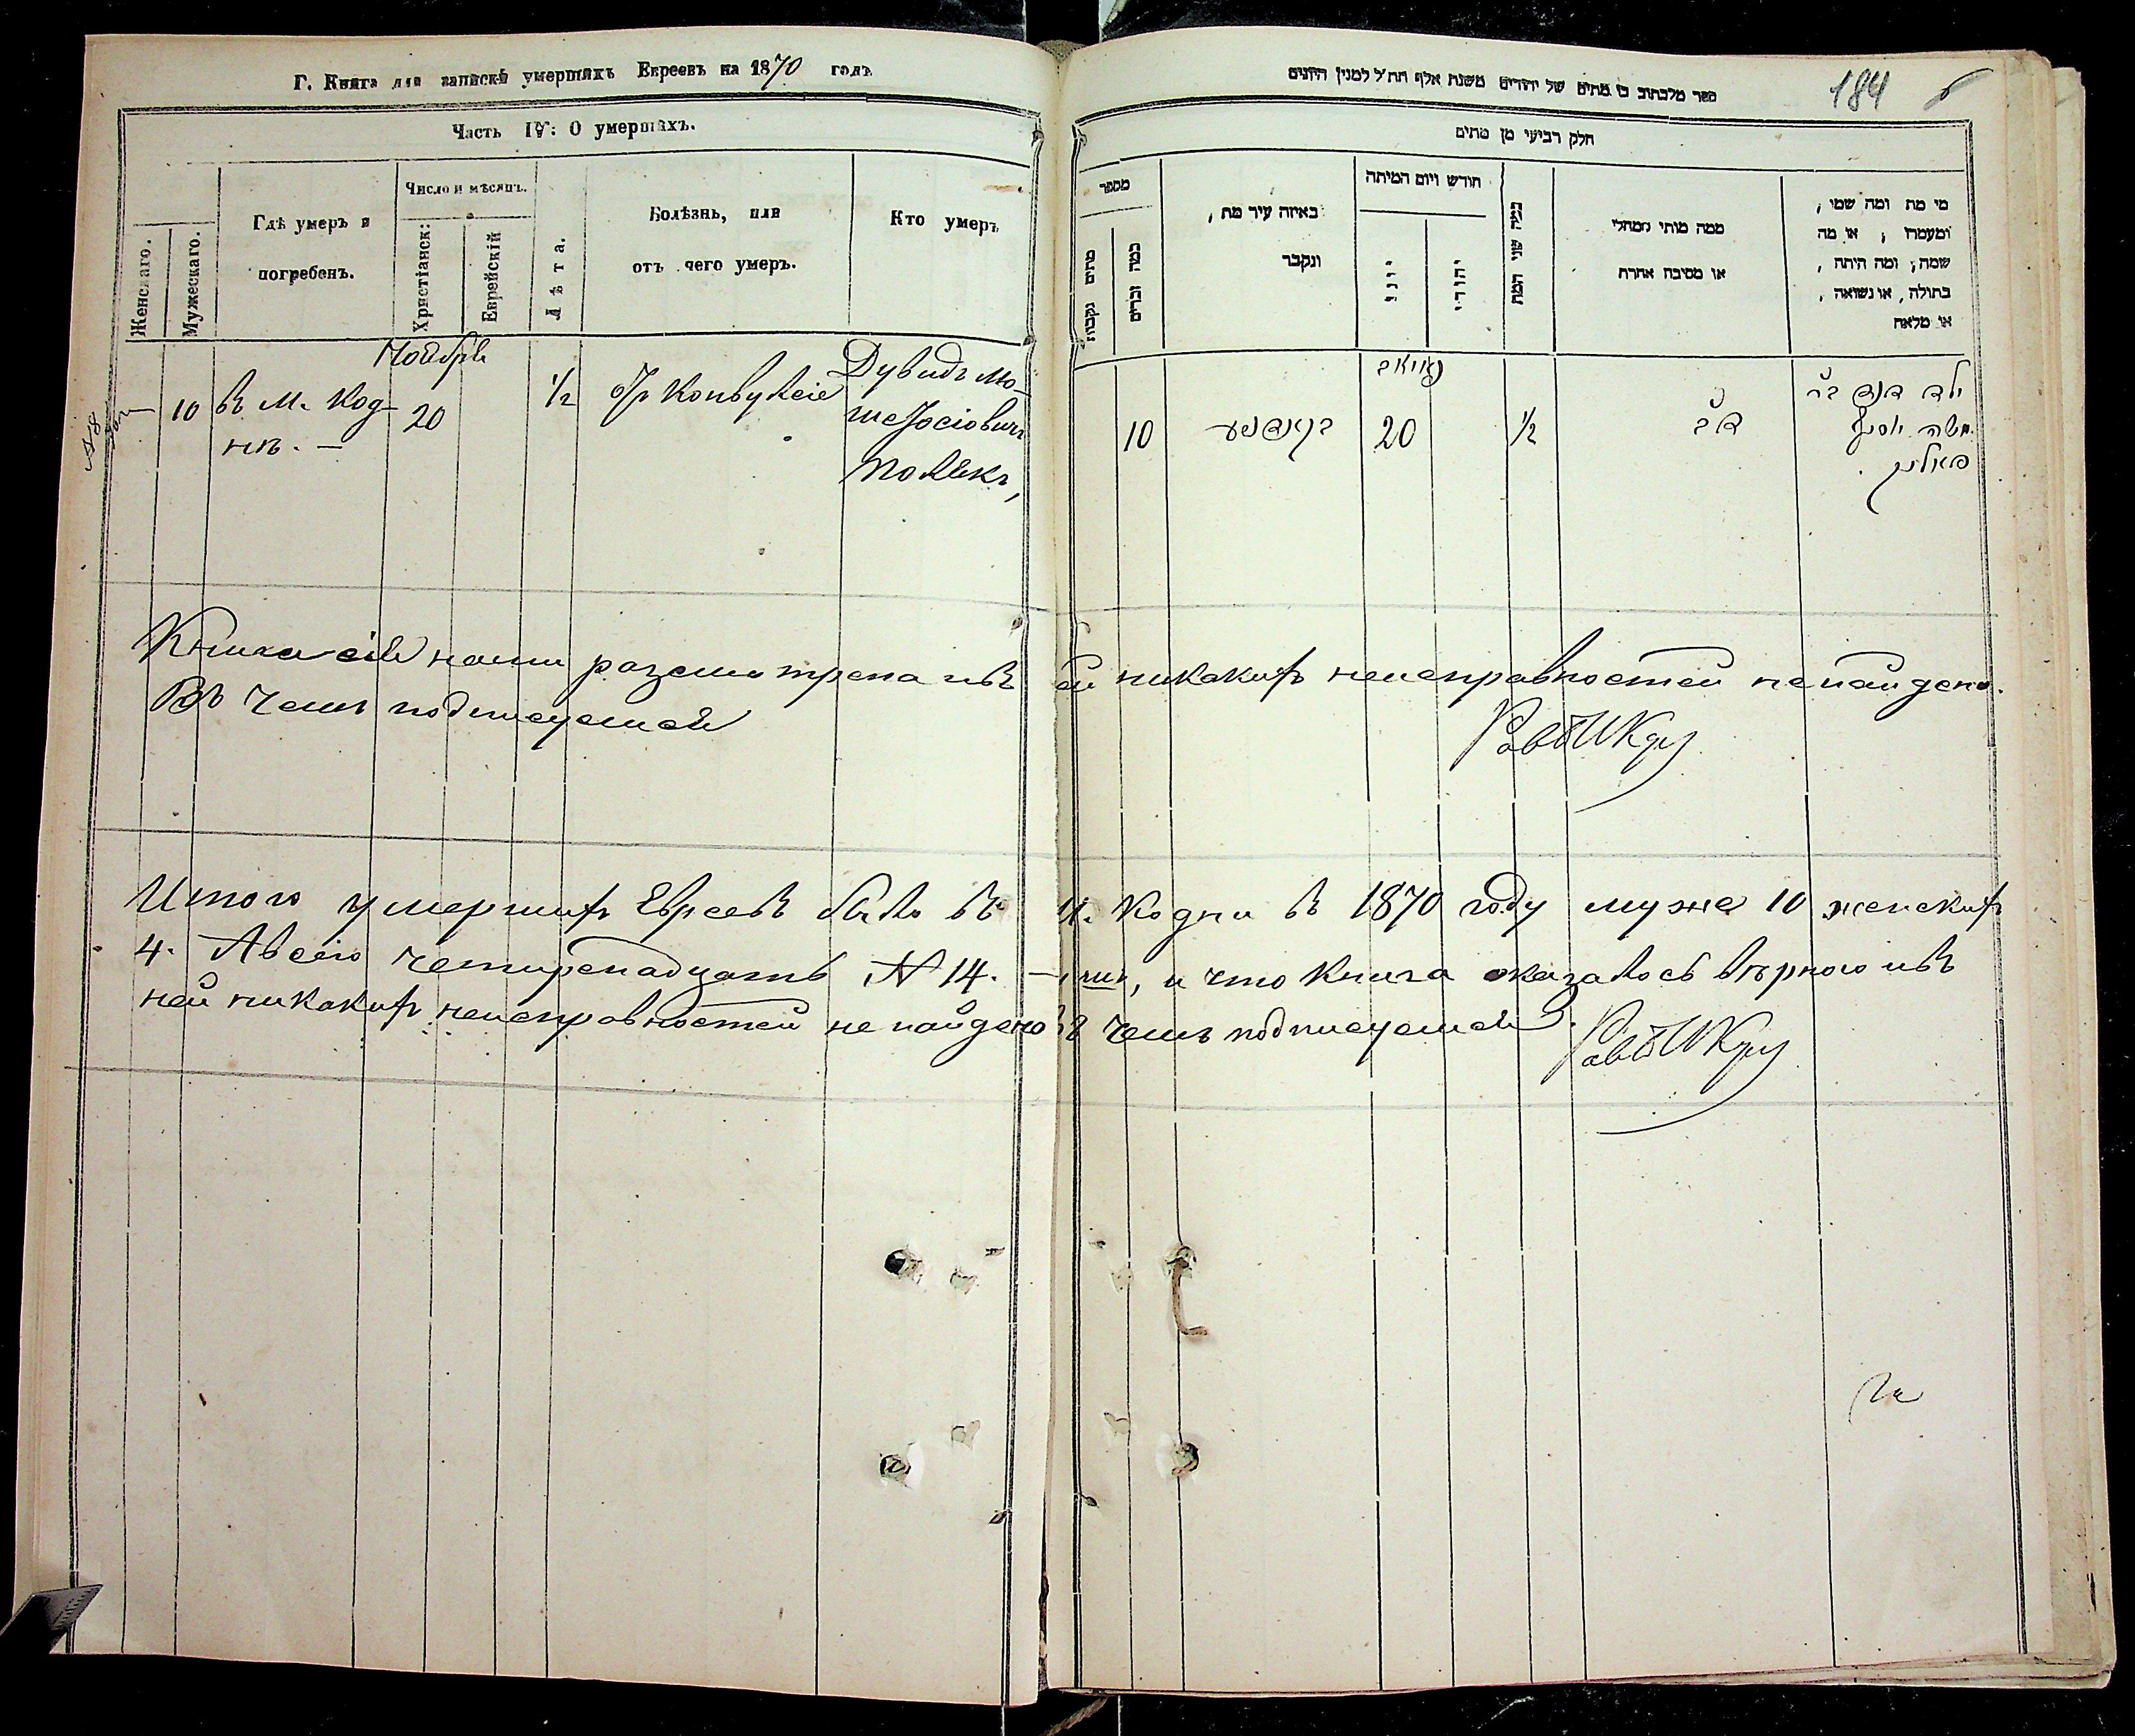 Г. Книга для записки умершихъ Евреевъ на 1870 годъ
Часть IV: О умершихъ.
Женскаго.
Мужескаго.
Гдѣ умеръ и
погребенъ.
Число и мѣсяцъ.
Христіанск:
Еврейскій
Лѣта.
Болѣзнь, или
отъ чего умеръ.
Кто умеръ
Ноября
10
въ М. Код-
нѣ. —
20
1/2
отъ Конвулсіе
Дувидъ Мо-
ше Іосіовичъ
Полякъ,
ספר מלכתוב בו מתים של יהודים משנת אלף תת״ל למנין היונים
184
חלק רביעי מן מתים
מספר
מתים נקבות
כמה זכרים
באיזה עיר מת,
ונקבר
חודש ויום המיתה
יוני
יהודי
כמה שני המת
ממה מותו ממחלי
או מסיבה אחרת
מי מת ומה שמו,
ומעמדו, או מה
שמה, ומה היתה,
בתולה, או נשואה,
או מלאה
10
20
1/2
ילד דוד בר
משה יוסף
פאליק
Книга сія нами разсмотрена и въ ей никакихъ неисправностей ненайдено.
Въ чемъ подписуемся
Итого умершихъ Евреевъ было въ М. Кодни въ 1870 году муже 10 женскихъ
4. А всего четиренадцать № 14. — и что Книга оказалось вѣрного и въ
ней никакихъ неисправностей не найдено въ чемъ подписуемся.